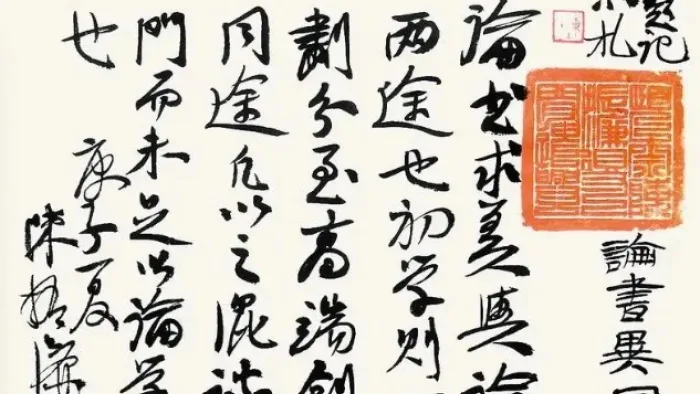 題記
小札
論書異同
論書求美與論
兩途也初學則
劃分至高端創
同途凡以之混
門而未足以論學
也
庚子夏
陳振濂